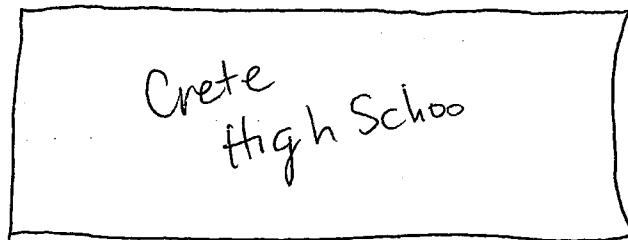 Crete
High Schoo